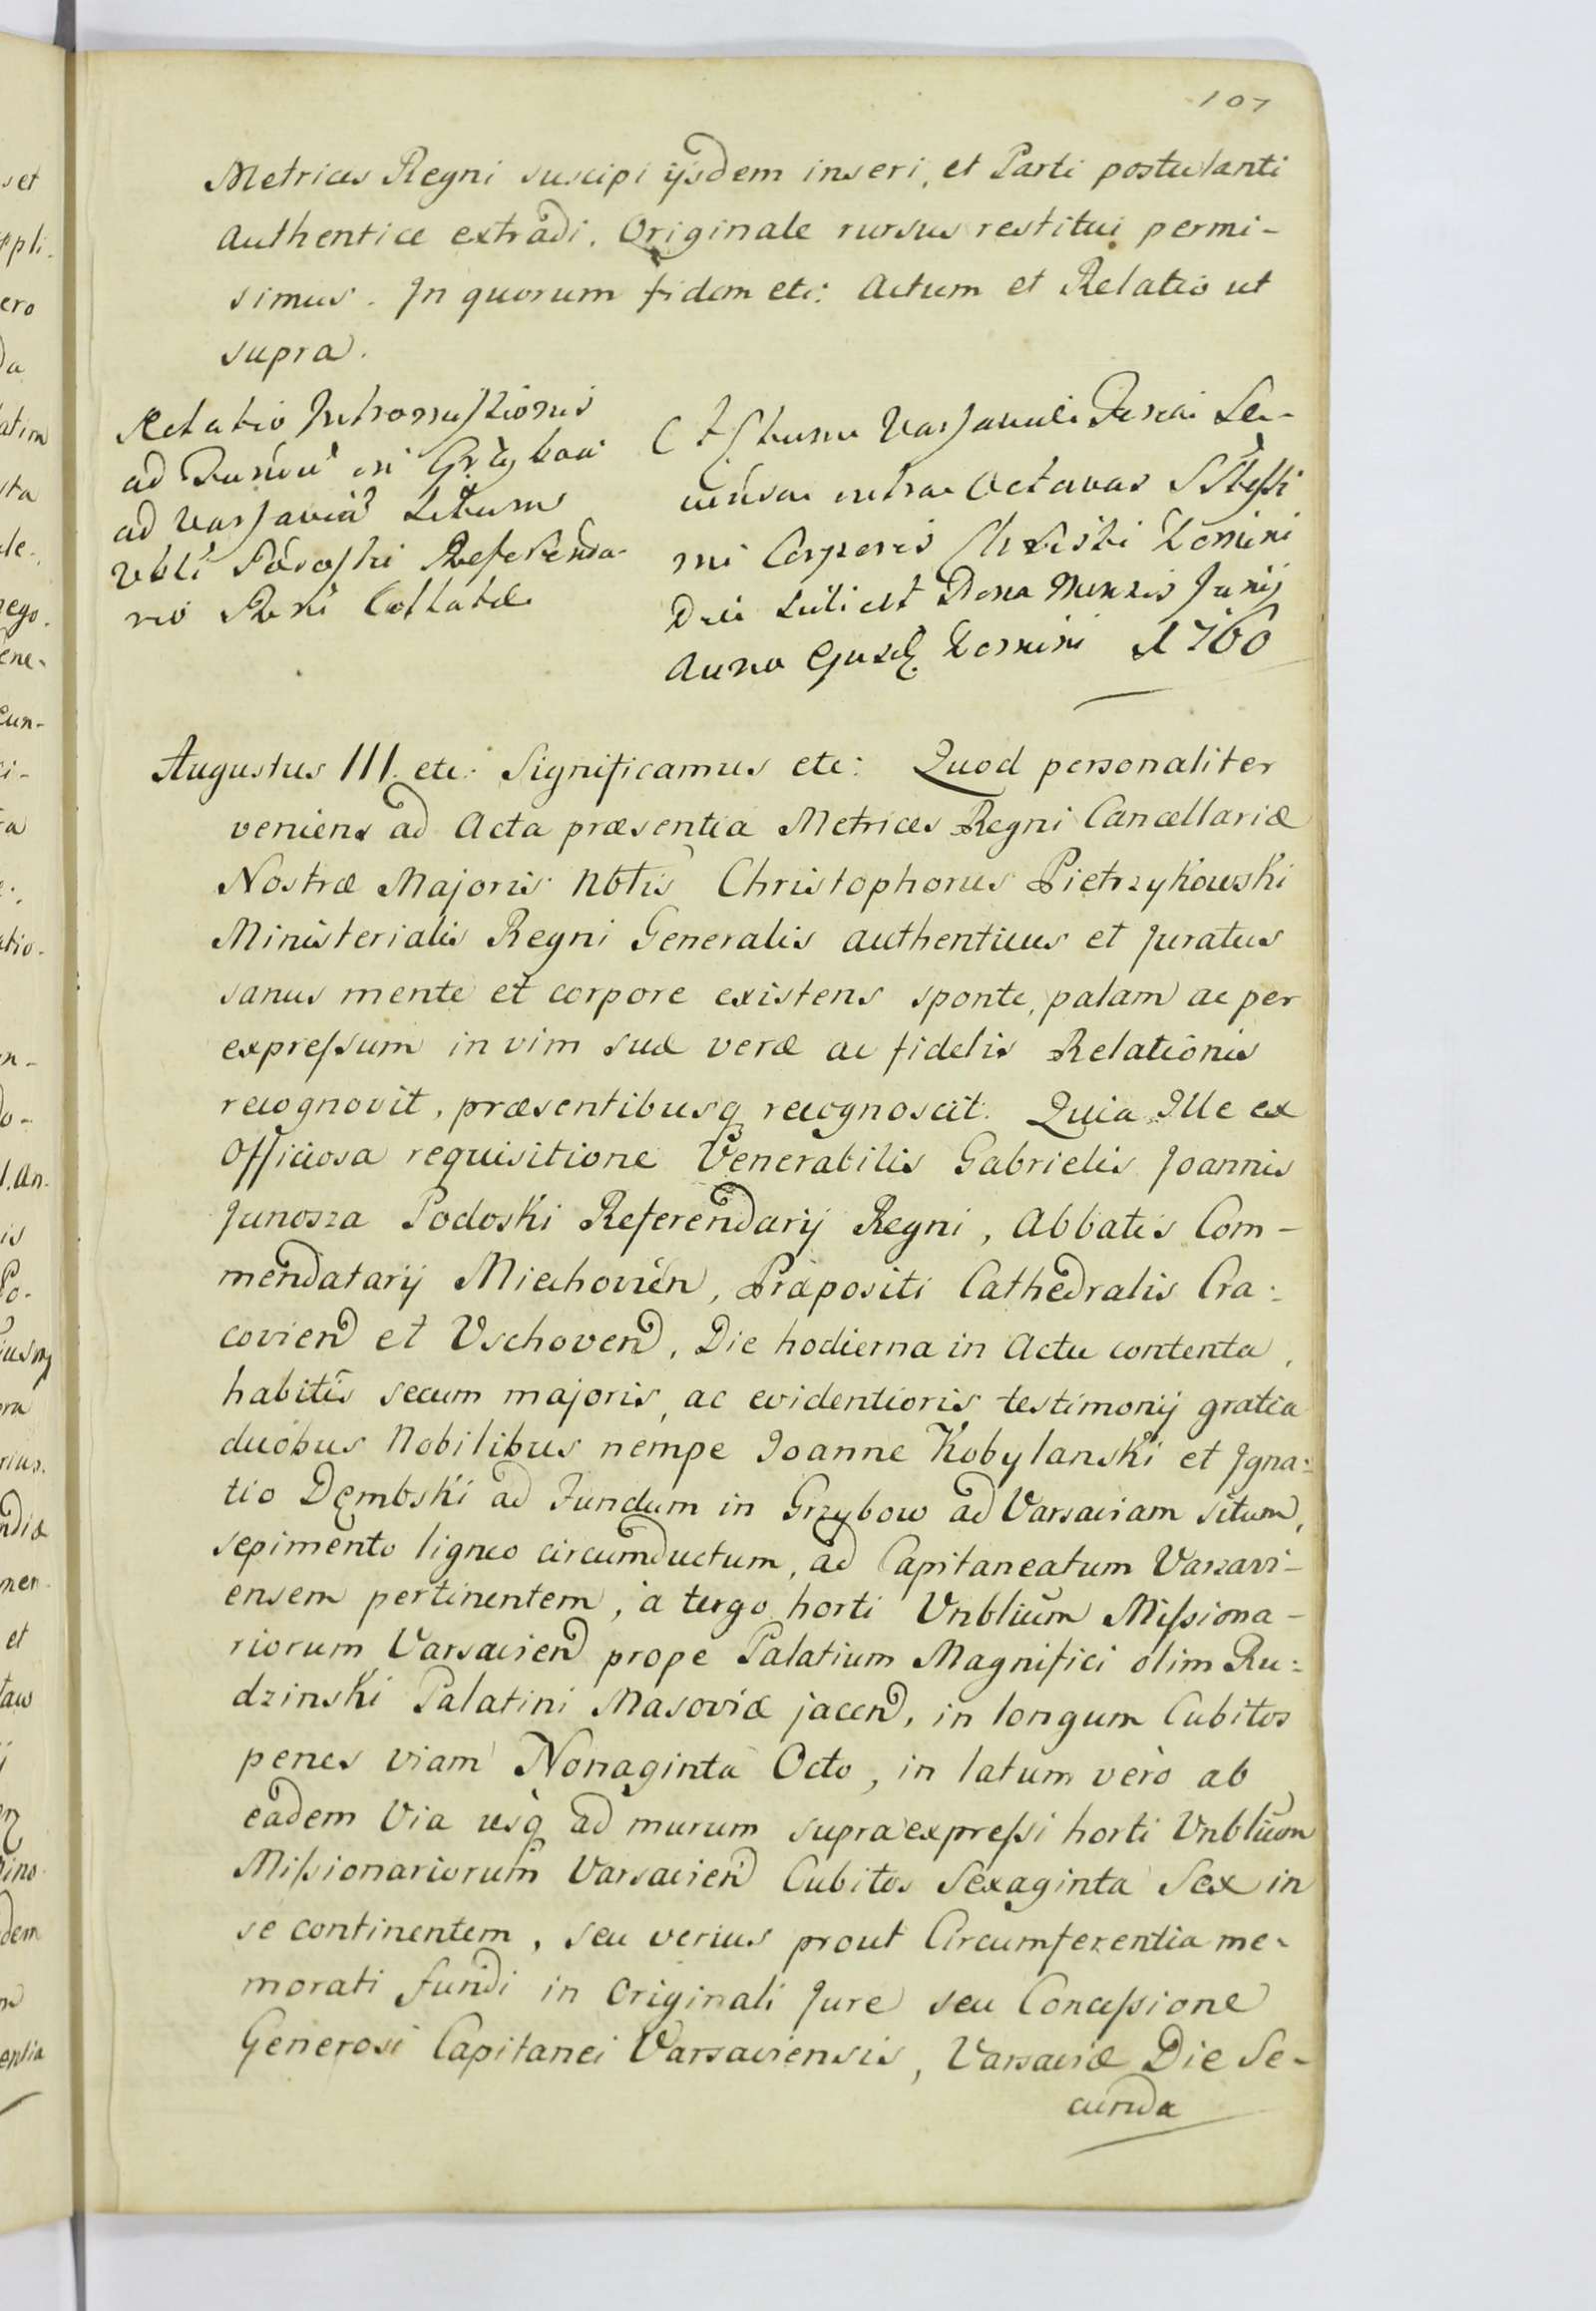 107
Metrices Regni suscipi ijsdem inseri, et Parti postulanti
authentice extradi. Originale rursus restitui permi-
simus. In quorum fidem etc: Actum et Relatio ut
supra.
Relatio Intromissionis
ad Fundū in Grzybow
ad Varsaviā Situm
Vbli Podoski Referenda-
rio Regni Collatū
Actum Varsaviæ Feria Se-
cunda intra Octavas SStissi
mi Corporis Christi Domini
Die scilicet Nona Mensis Junij
Anno Ejusd Domini 1760
Augustus III. etc: Significamus etc: Quod personaliter
veniens ad Acta præsentia Metrices Regni Cancellariæ
Nostræ Majoris Nbtis Christophorus Pietrzykowski
Ministerialis Regni Generalis authenticus et Juratus
sanus mente et corpore existens sponte, palam ac per
expreſsum in vim suæ veræ ac fidelis Relationis
recognovit, præsentibusq recognoscit. Quia Ille ex
Officiosa requisitione Venerabilis Gabrielis Joannis
Junosza Podoski Referendarij Regni, Abbatis Com-
mendatarij Miechovien, Præpositi Cathedralis Cra:
covien et Vschoven, Die hodierna in Actu contenta,
habitis secum majoris, ac evidentioris testimonij gratia
duobus Nobilibus nempe Joanne Kobylanski et Igna:
tio Dembski ad Fundum in Grzybow ad Varsaviam situm,
sepimento ligneo circumductum, ad Capitaneatum Varsavi-
ensem pertinentem, à tergo horti Vnblium Miſsiona-
riorum Varsavien prope Palatium Magnifici olim Ru:
dzinski Palatini Masoviæ jacen, in longum Cubitos
penes viam Nonaginta Octo, in latum verò ab
eadem Via usq ad murum supraexpreſsi horti Vnblium
Miſsionariorum Varsavien Cubitos Sexaginta Sex in
se continentem, seu verius prout Circumferentia me-
morati fundi in Originali Jure seu Conceſsione
Generosi Capitanei Varsaviensis, Varsaviæ Die Se-
cunda